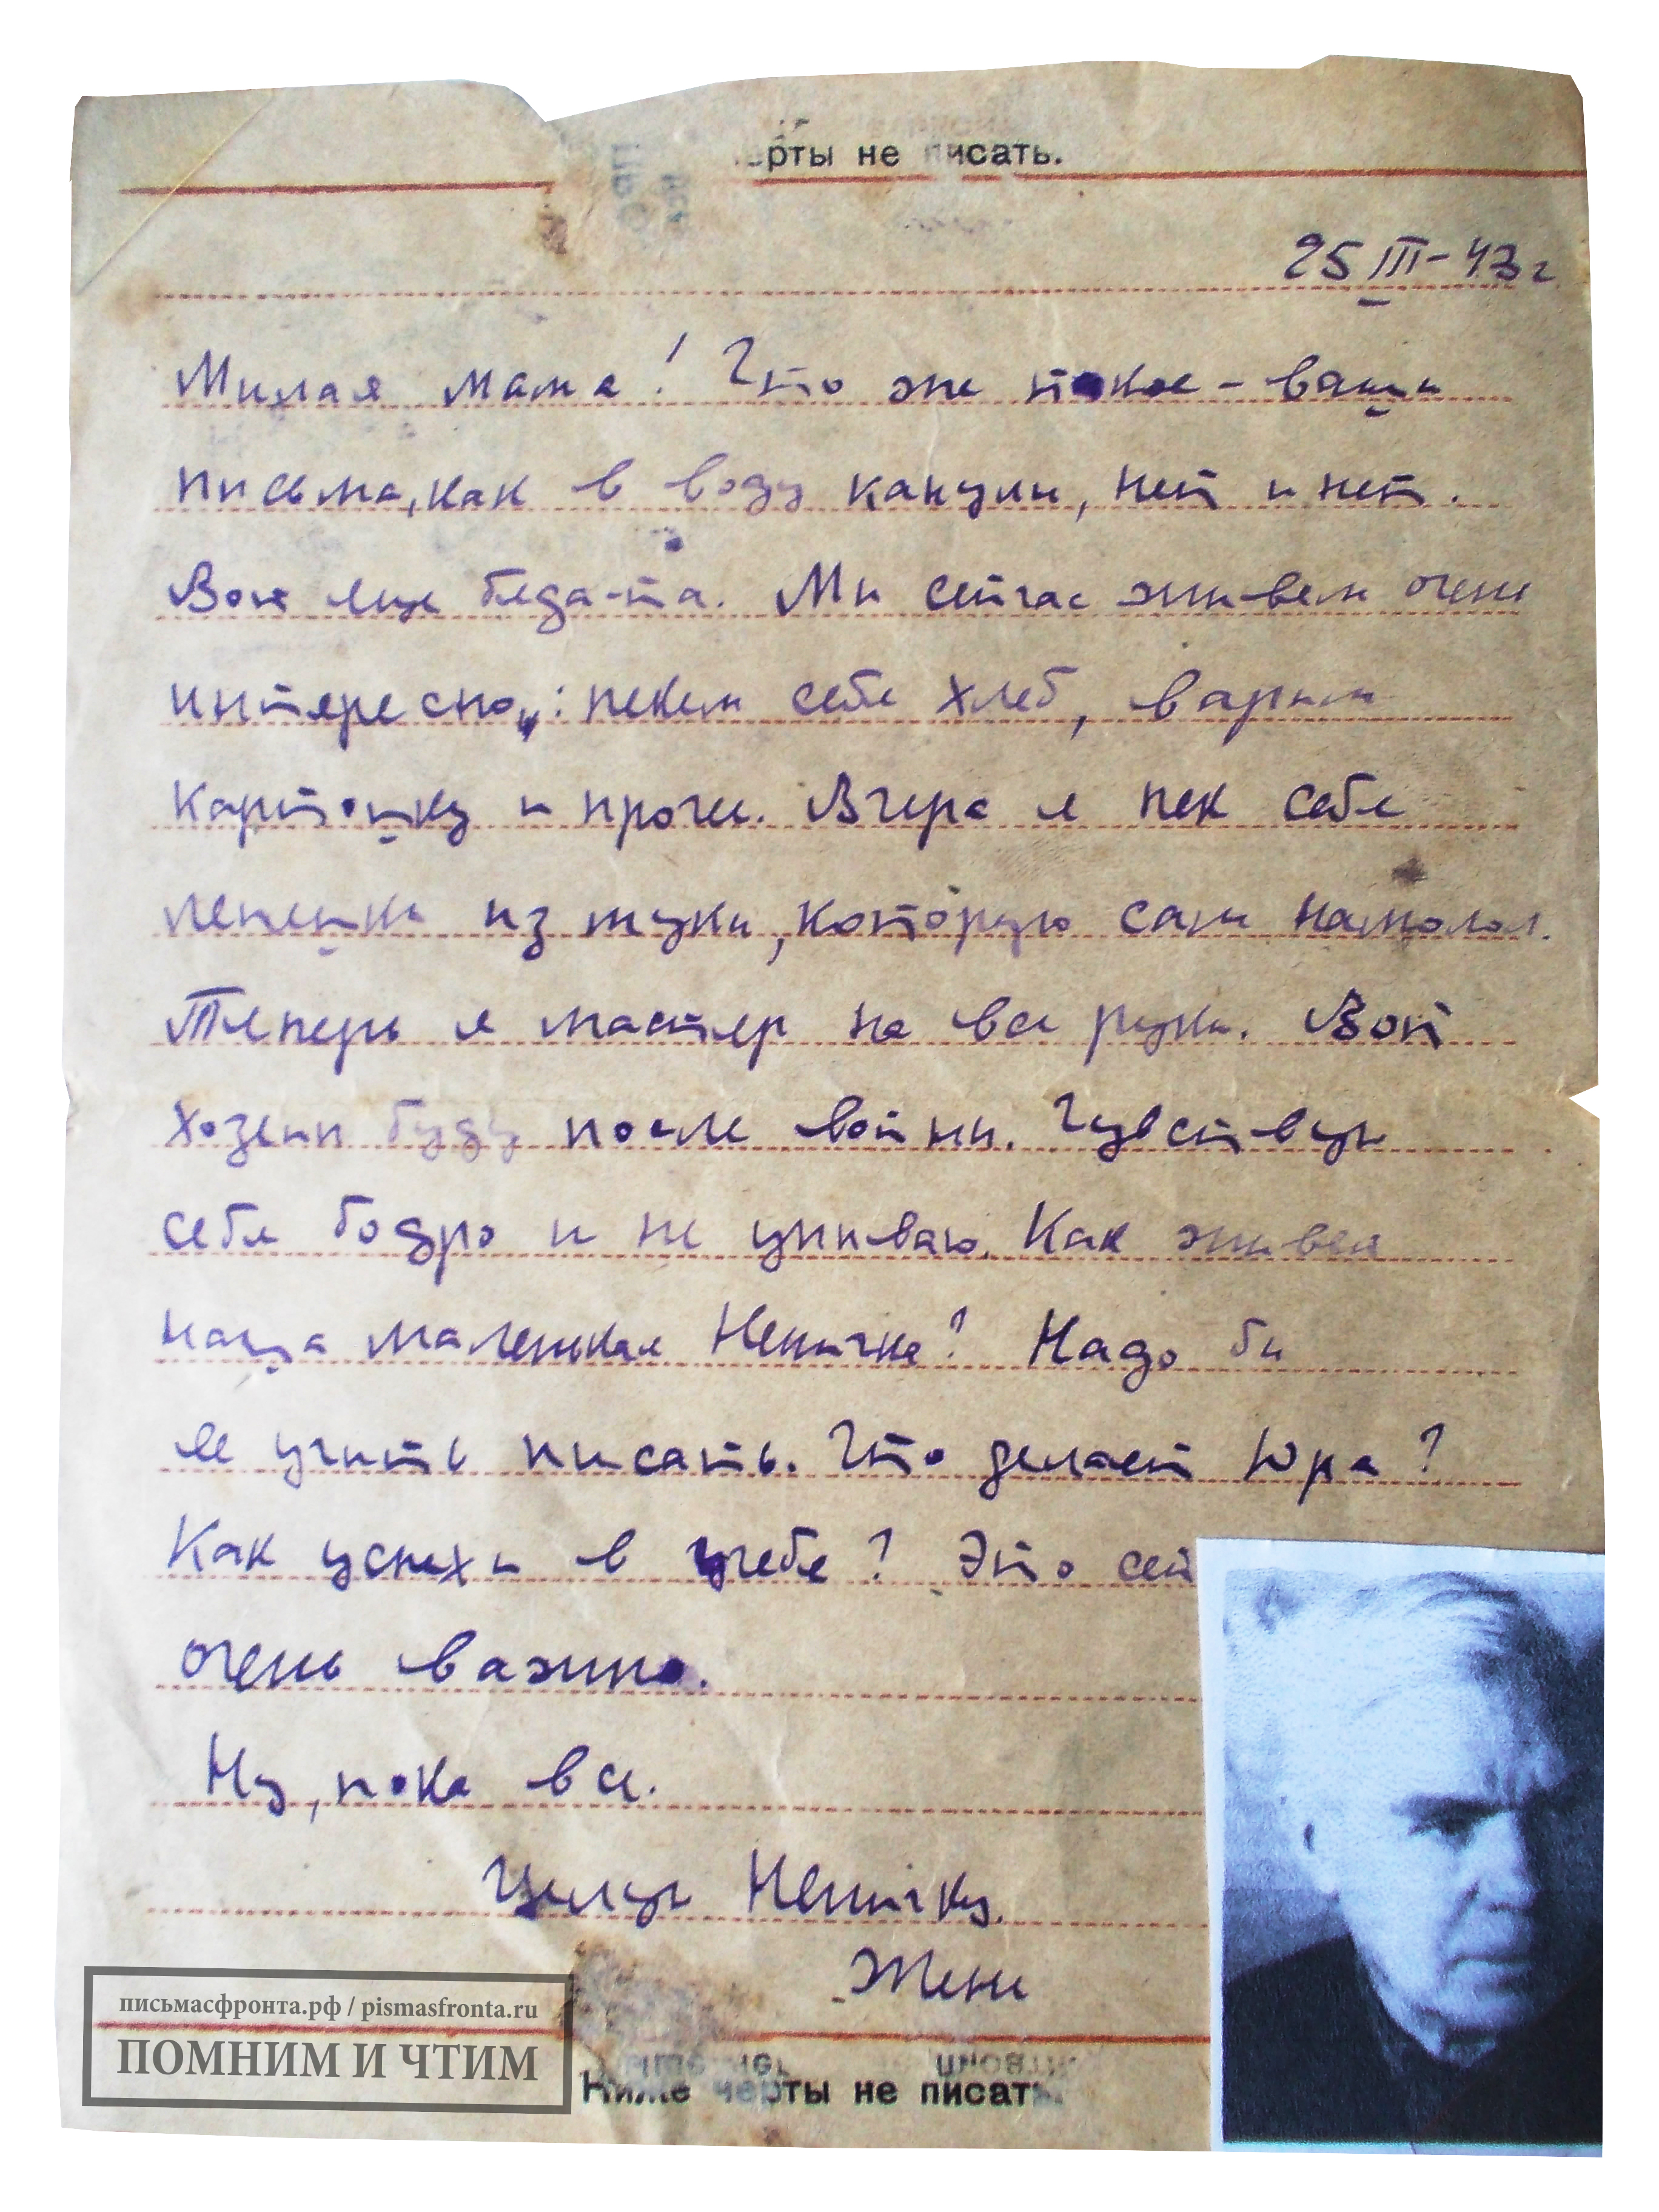 черты не писать.
25 III-43 г
Милая мама! Что же такое - ваши
письма, как в воду канули, нет и нет.
Вот еще беда-та. Мы сейчас живем очень
интересно: пекем себе хлеб, варим
картошку и прочее. Вчера я пек себе
лепешки из муки, которую сам намолол.
Теперь я мастер на все руки. Вот
хозеин буду после войны. Чувствую
себя бодро и не унываю. Как живет
наша маленькая Неничка? Надо бы
ее учить писать. Что делает Юра?
Как успехи в учебе? Это сей
очень важно.
Ну, пока все.
Целую Неничку.
Женя
письмасфронта.рф / pismasfronta.ru
ПОМНИМ И ЧТИМ
Ниже черты не писать.